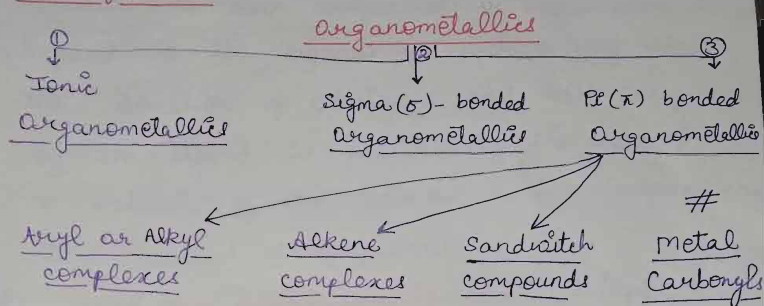 Organometallics
① ② ③
Ionic Organometallics
Sigma (σ) - bonded Organometallics
Pi (π) bonded Organometallic
#
Aryl or Alkyl complexes
Alkene complexes
Sandwitch compounds
Metal Carbonyls